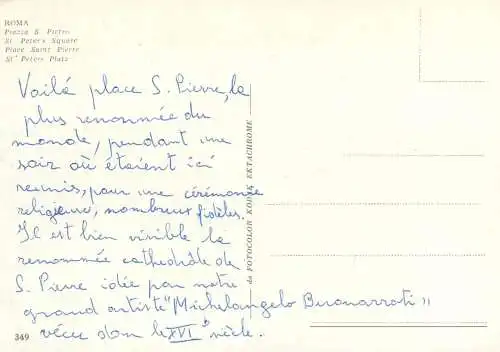 ROMA
Piazza S. Pietro
St Peter's Square
Place Saint Pierre
St Peters Platz
Voilá place S. Pierre, la
plus renommée du
monde, pendant une
soir où étaient ici
reunis, pour une cérémonie
religieuse, nombreux fidèles.
Il est bien visible la
renommée cathédrale de
S. Pierre idée par notre
grand artiste "Michelangelo Buonarroti"
vécu dans le XVI° siècle.
da FOTOCOLOR KODAK EKTACHROME
349